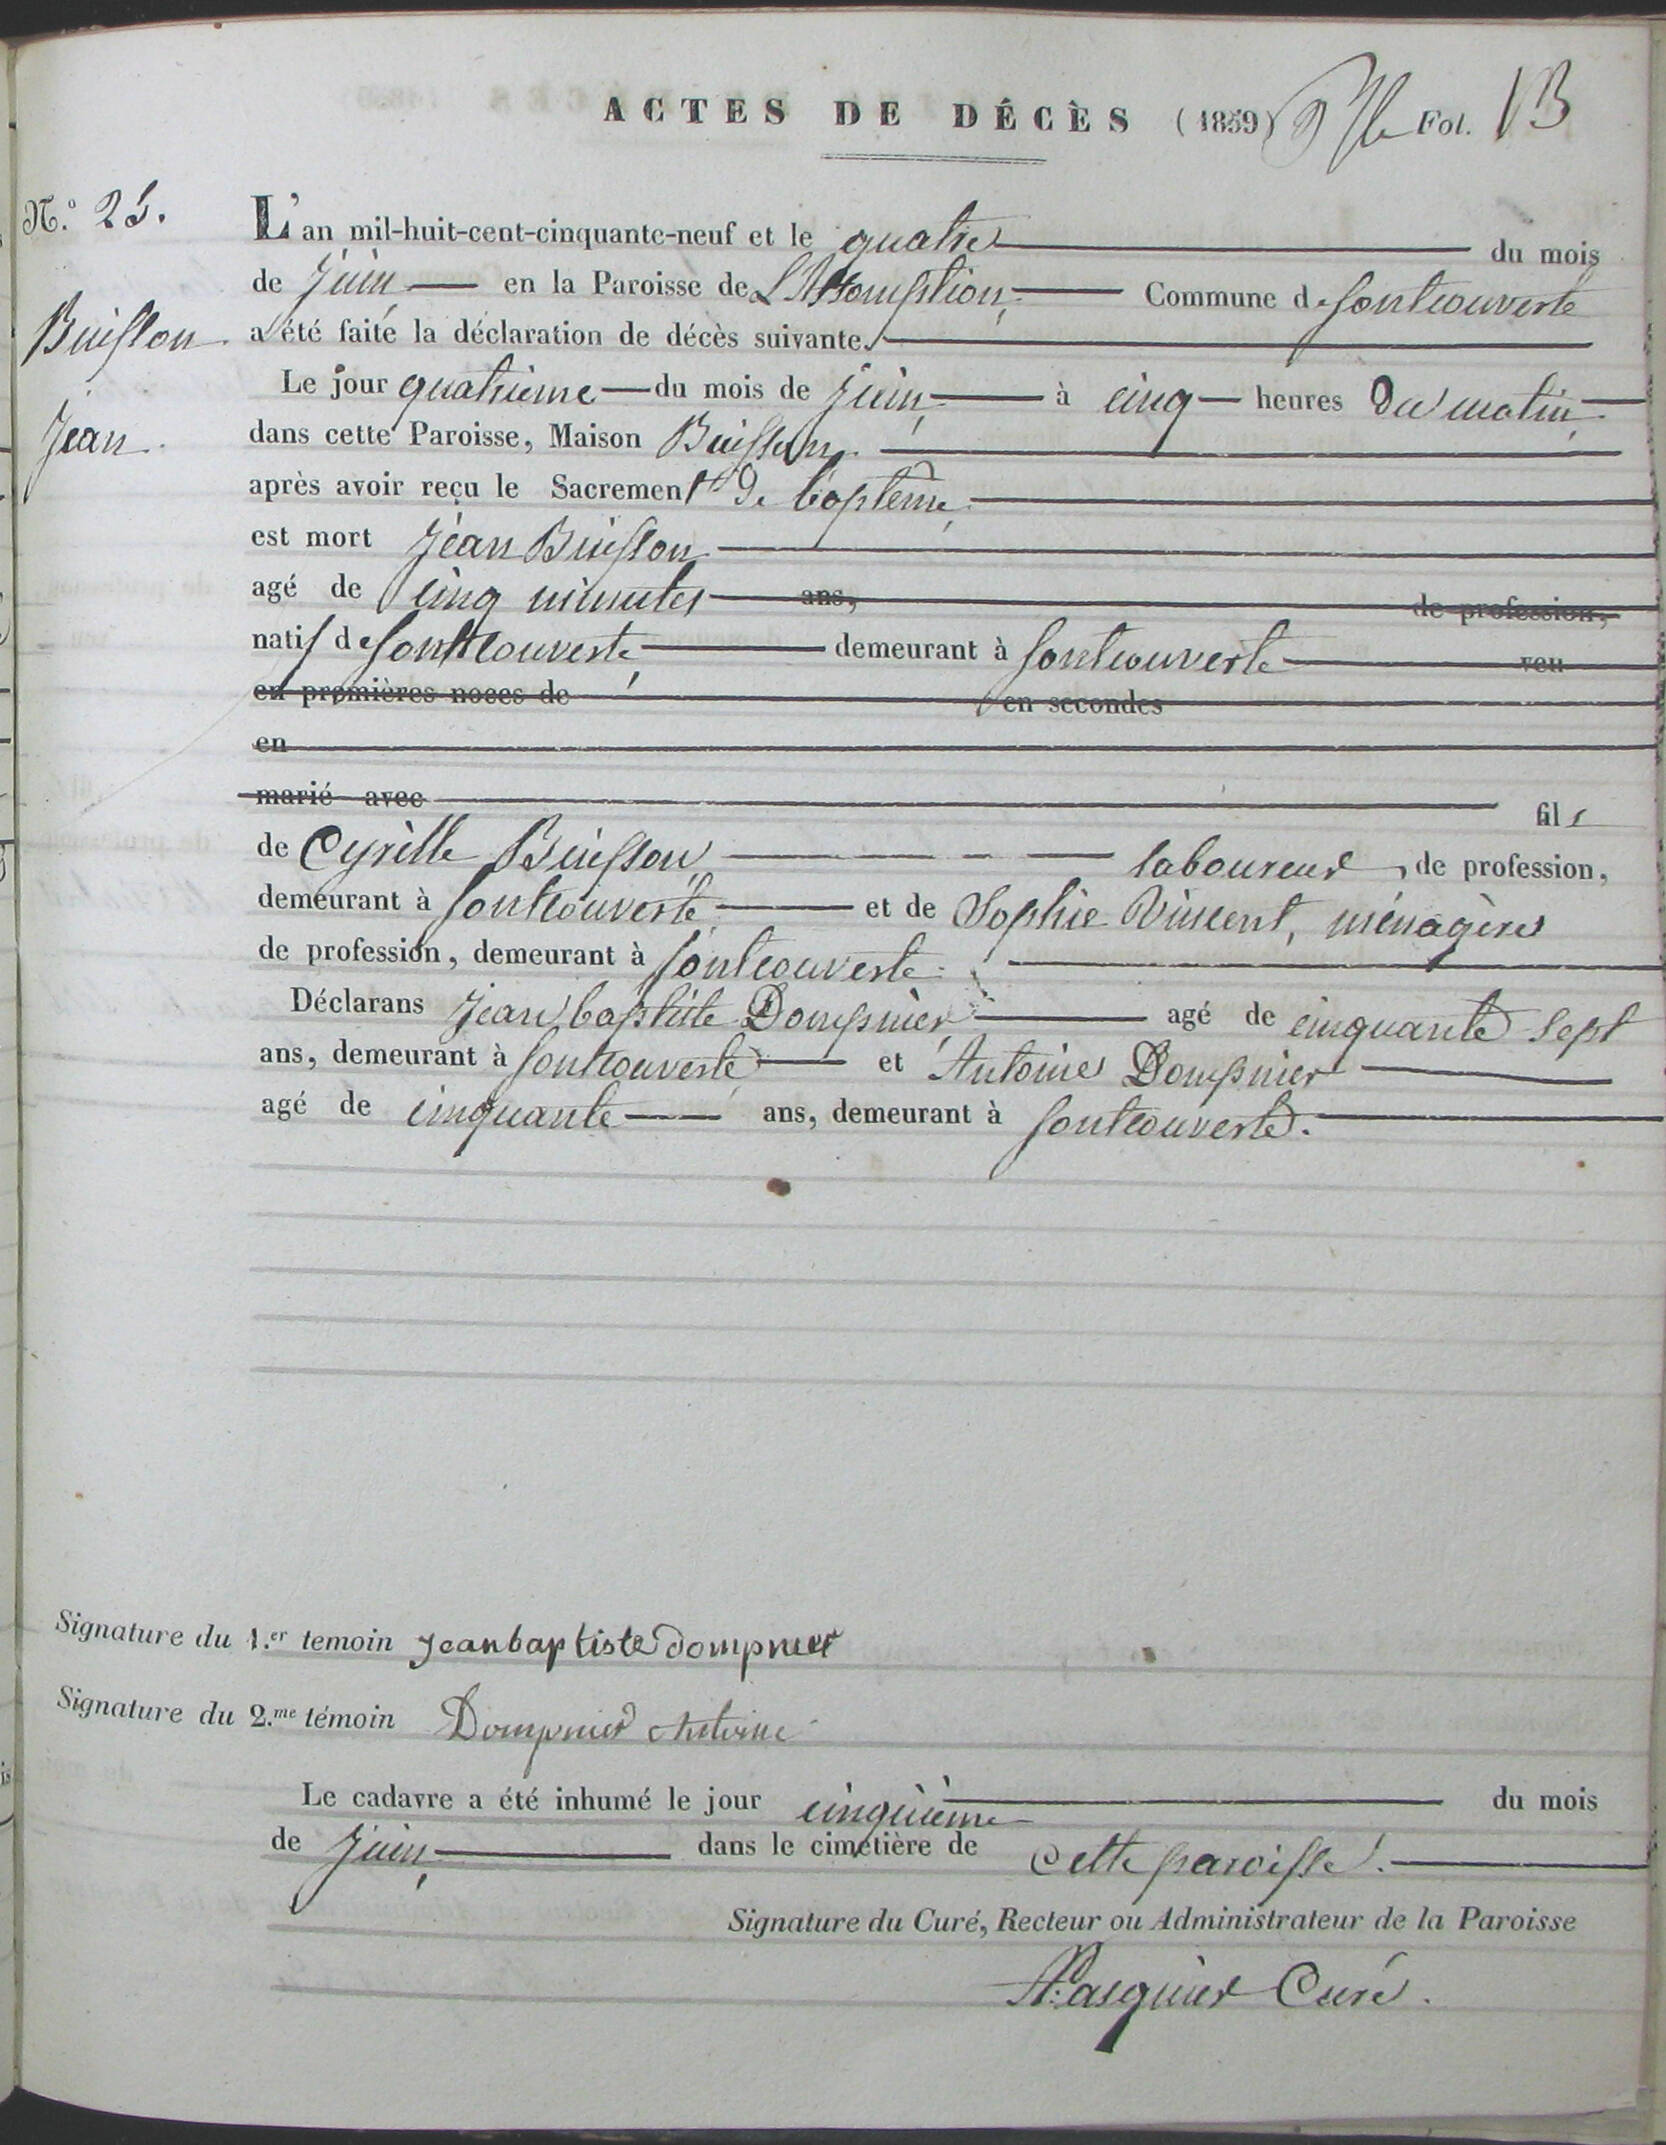 ACTES DE DÉCÈS (1859) Fol. 13
N.º 25.
L'an mil-huit-cent-cinquante-neuf et le quatre du mois
de juin en la Paroisse de L'Assomption, Commune de fontcouverte
Buisson a été faite la déclaration de décès suivante.
Le jour quatrième du mois de juin, à cinq heures du matin,
Jean. dans cette Paroisse, Maison Buisson.
après avoir reçu le Sacrement de baptême,
est mort Jean Buisson
agé de cinq minutes ans, de profession,
natif de fontcouverte, demeurant à fontcouverte veu
en premières noces de en secondes
en
marié avec fils
de Cyrille Buisson laboureur, de profession,
demeurant à fontcouverte et de Sophie Vincent, ménagère
de profession, demeurant à fontcouverte.
Déclarans Jean baptiste Dompnier, agé de cinquante sept
ans, demeurant à fontcouverte et Antoine Dompnier
agé de cinquante ans, demeurant à fontcouverte.
Signature du 1.er temoin jeanbaptiste dompnier
Signature du 2.me témoin Dompnier Antoine
Le cadavre a été inhumé le jour cinquième du mois
de juin, dans le cimetière de cette paroisse.
Signature du Curé, Recteur ou Administrateur de la Paroisse
Pasquier Curé.